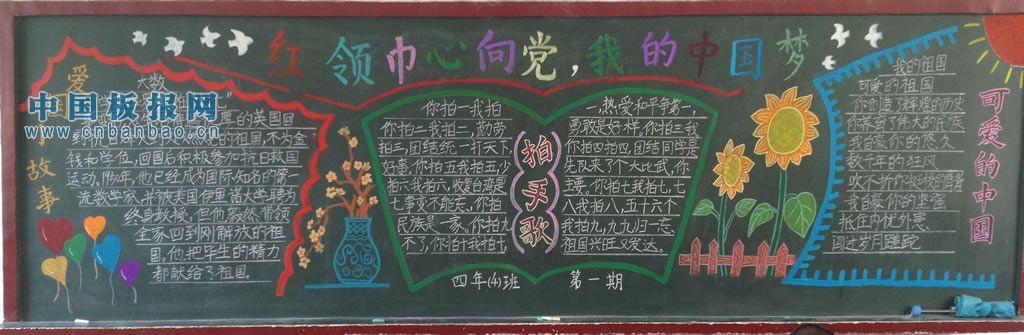 红领巾心向党,我的中国梦
爱
故事
中国板报网
www.cnbanbao.cn
大数
厚的英国回
的祖国,不为金
钱和学位,回国后积极参加抗日救国
运动。1950年,他已经成为国际知名的第一
流数学家,并被美国伊里诺大学聘为
终身教授,但他毅然带领
全家回到刚解放的祖
国,他把毕生的精力
都献给了祖国。
拍手歌
你拍一我拍
一,热爱和平争第一,
你拍二我拍二,勤劳
勇敢是好样,你拍三我
拍三,团结统一打天下,
你拍四我拍四,团结同学是
你拍五我拍五,少
先队来了个大比武,你
拍六我拍六,收复台湾是
主要,你拍七我拍七,七
七事变不能忘,你拍
八我拍八,五十六个
民族是一家,你拍九
我拍九,九九归一忘
不了,你拍十我拍十,
祖国兴旺又发达。
四年(4)班 第一期
可爱的中国
我的祖国
可爱的祖国
你创造了辉煌的历史
你养育了伟大的民族
我自豪你的悠久
数千年的狂风
吹不折你
我自豪你的坚强
抵住内忧外患
闯过岁月蹉跎